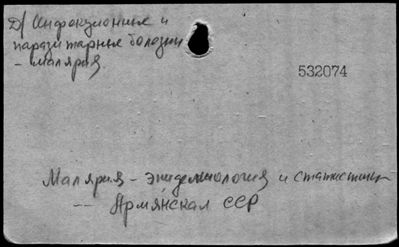 Д/ Инфекционные и
паразитарные болезни
- малярия
532074
Малярия - эпидемиология и статистика
-- Армянская ССР